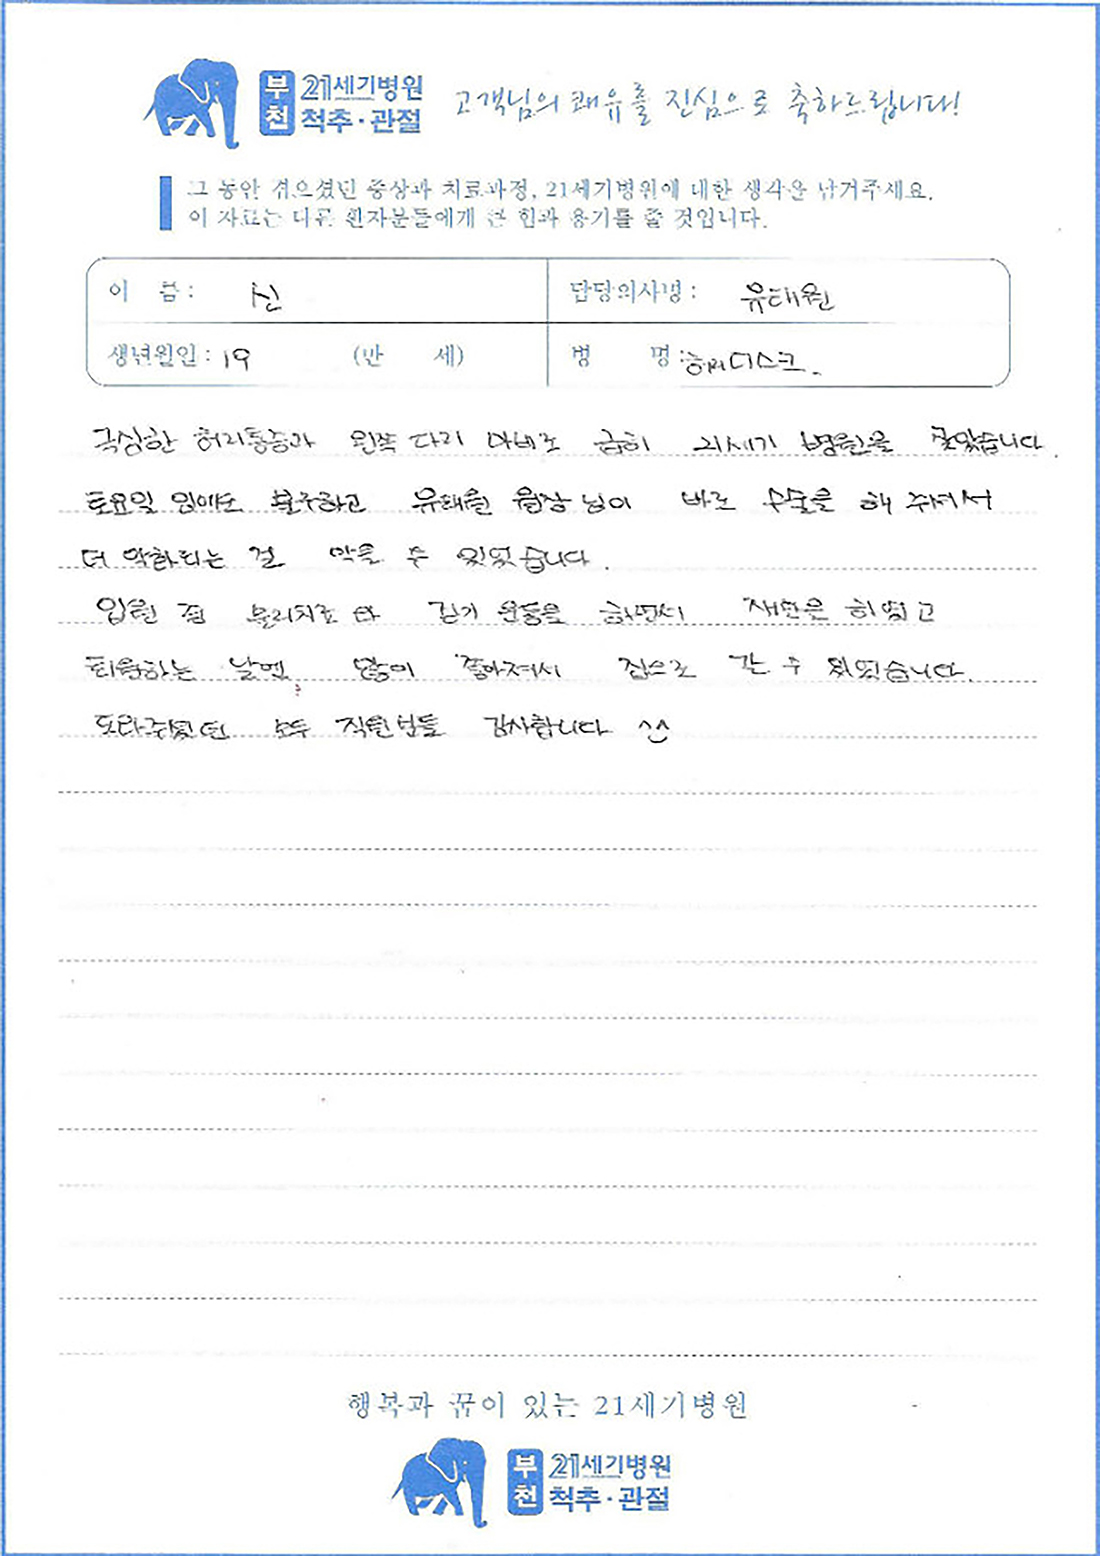 부천 21세기병원 척추·관절 고객님의 쾌유를 진심으로 축하드립니다!
그 동안 겪으셨던 증상과 치료과정, 21세기병원에 대한 생각을 남겨주세요.
이 자료는 다른 환자분들에게 큰 힘과 용기를 줄 것입니다.
이 름 : 신 담당의사명 : 유태원
생년월일 : 19 (만 세) 병 명 : 허리디스크.
극심한 허리통증과 왼쪽 다리 마비로 급히 21세기 병원을 찾았습니다.
토요일 임에도 불구하고 유태원 원장님이 바로 수술을 해 주셔서
더 악화되는 걸 막을 수 있었습니다.
입원 중 물리치료와 걷기 운동을 하면서 재활을 하였고
퇴원하는 날엔 많이 좋아져서 집으로 갈 수 있었습니다.
도와주셨던 모두 직원분들 감사합니다 ^^
행복과 꿈이 있는 21세기병원
부천 21세기병원 척추·관절